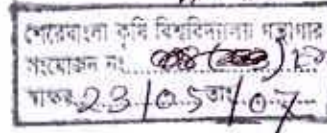 শেরেবাংলা কৃষি বিশ্ববিদ্যালয় গন্থাগার
সংযোজন নং
স্বাক্ষর 23/05 তাং /07